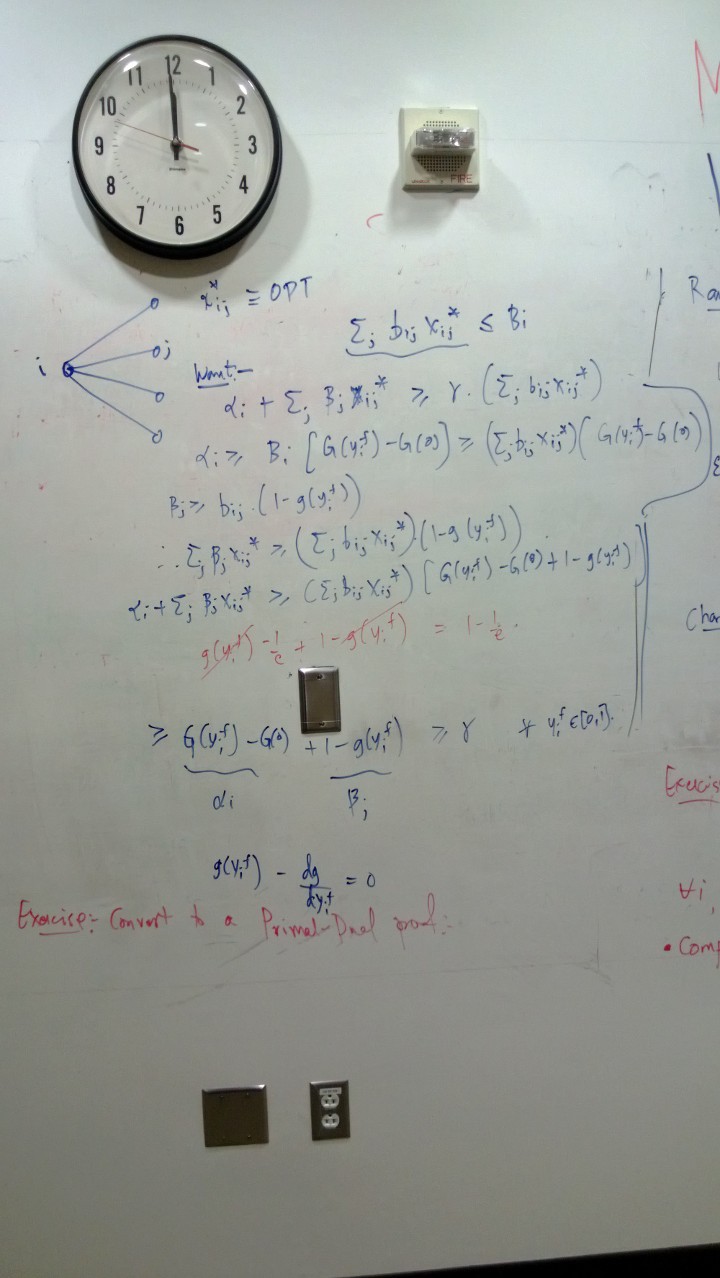 12
11 1
10 2
9 3
8 4
7 5
6
FIRE
M
x*ij ≡ OPT
Σj bij xij* ≤ Bi
i
j
Want:-
αi + Σj βj xij* ≥ γ. (Σj bij xij*)
αi ≥ Bi [G(yi^f) - G(0)] ≥ (Σj bij xij*)(G(yi^f) - G(0))
βj ≥ bij . (1-g(yi^f))
∴ Σj βj xij* ≥ (Σj bij xij*) . (1-g(yi^f))
αi + Σj βj xij* ≥ (Σj bij xij*) [G(yi^f) - G(0) + 1 - g(yi^f)]
g(yi^f) - 1/e + 1 - g(yi^f) = 1 - 1/e.
≥ G(yi^f) - G(0) + 1 - g(yi^f) ≥ γ ∀ yi^f ∈ [0,1].
αi βj
g(yi^f) - dg/dyi^f = 0
Exercise:- Convert to a Primal-Dual proof:-
Ran
Cha
Exercis
∀i,
• Comp